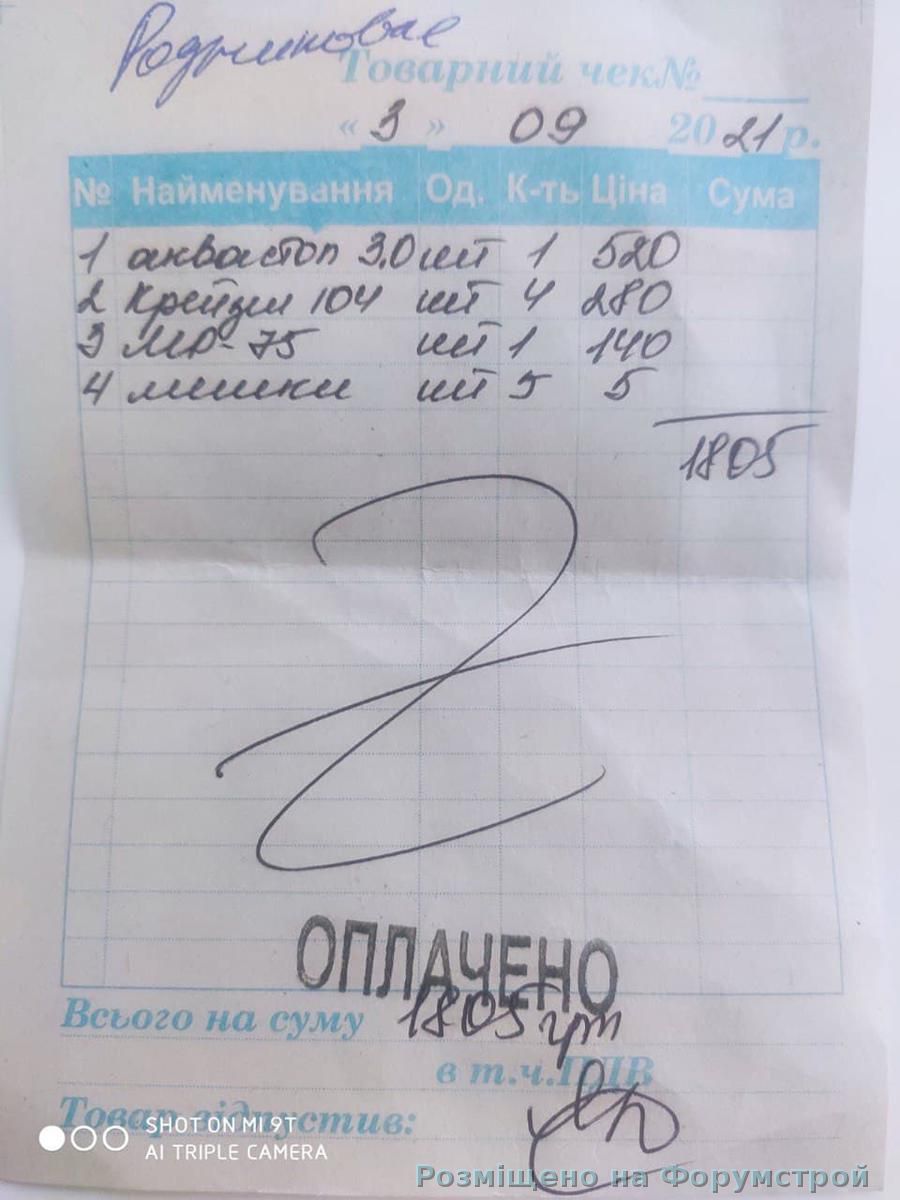 Товарний чек№
« 3 » 09 2021 р.
№ Найменування Од. К-ть Ціна Сума
1 аквастоп 3.0 шт 1 520
2 Крейзи 104 шт 4 280
3 МР-75 шт 1 140
4 мишки шт 5 5
1805
ОПЛАЧЕНО
Всього на суму 1805 грн
в т.ч.ПДВ
Товар відпустив:
SHOT ON MI 9T
AI TRIPLE CAMERA
Розміщено на Форумстрой